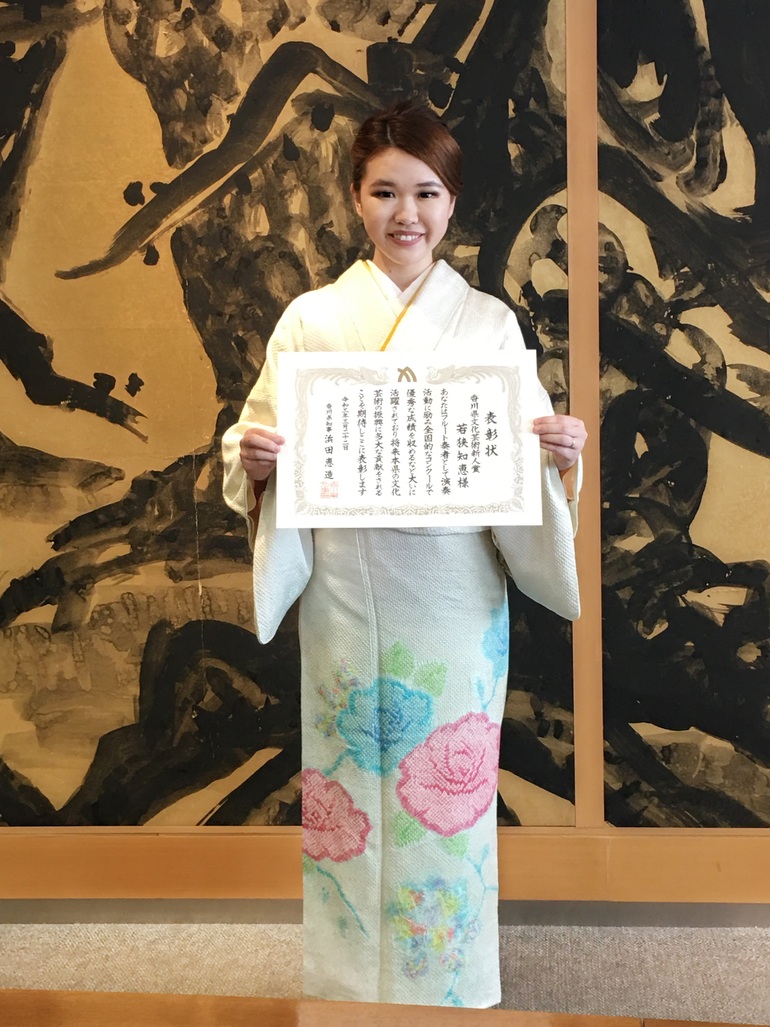 表彰状
香川県文化芸術新人賞
若狭知恵様
あなたはフルート奏者として演奏
活動に励み全国的なコンクールで
優秀な成績を収めるなど大いに
活躍されており将来本県の文化
芸術の振興に多大な貢献をされる
ことを期待しここに表彰します
令和三年三月二十二日
香川県知事 浜田恵造